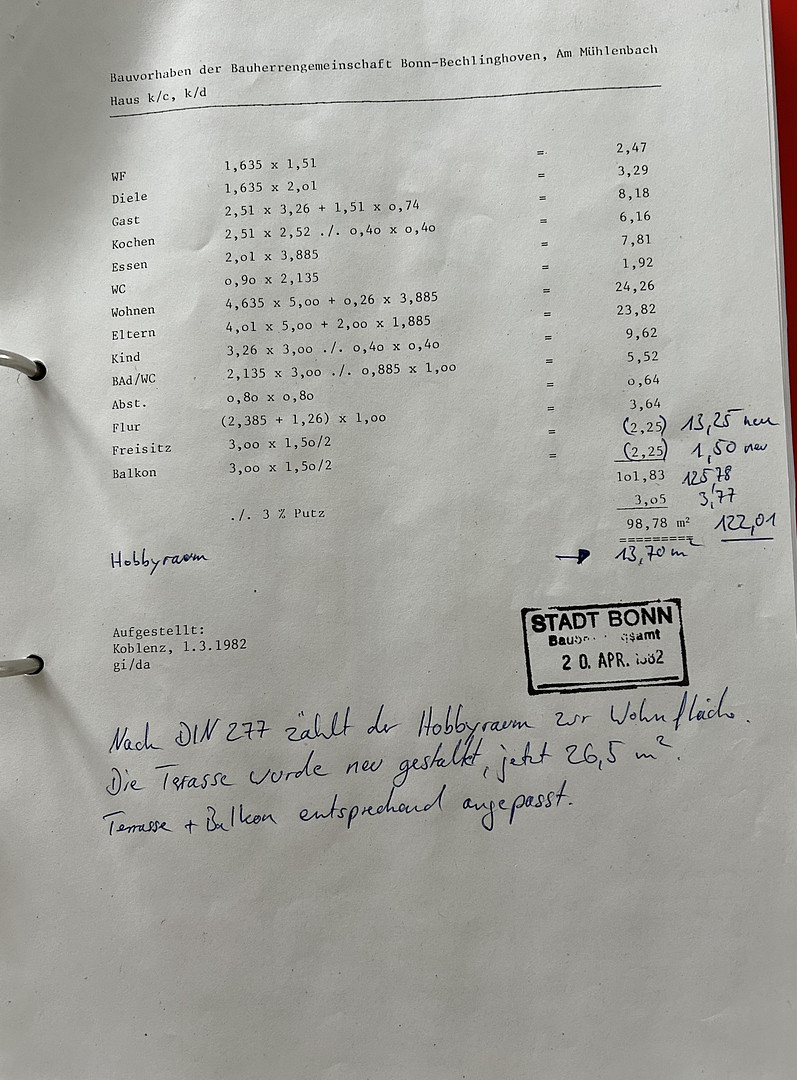 Bauvorhaben der Bauherrengemeinschaft Bonn-Bechlinghoven, Am Mühlenbach
Haus k/c, k/d
WF 1,635 x 1,51 = 2,47
Diele 1,635 x 2,o1 = 3,29
Gast 2,51 x 3,26 + 1,51 x o,74 = 8,18
Kochen 2,51 x 2,52 ./. o,4o x o,4o = 6,16
Essen 2,o1 x 3,885 = 7,81
WC o,9o x 2,135 = 1,92
Wohnen 4,635 x 5,oo + o,26 x 3,885 = 24,26
Eltern 4,o1 x 5,oo + 2,oo x 1,885 = 23,82
Kind 3,26 x 3,oo ./. o,4o x o,4o = 9,62
BAd/WC 2,135 x 3,oo ./. o,885 x 1,oo = 5,52
Abst. o,8o x o,8o = o,64
Flur (2,385 + 1,26) x 1,oo = 3,64
Freisitz 3,oo x 1,5o/2 = (2,25) 13,25 neu
Balkon 3,oo x 1,5o/2 = (2,25) 1,50 neu
1o1,83 125,78
./. 3 % Putz 3,o5 3,77
98,78 m² 122,01
Hobbyraum → 13,70 m²
Aufgestellt:
Koblenz, 1.3.1982
gi/da
STADT BONN
2 0. APR. 1982
Nach DIN 277 zählt der Hobbyraum zur Wohnfläche.
Die Terasse wurde neu gestaltet, jetzt 26,5 m².
Terrasse + Balkon entsprechend angepasst.